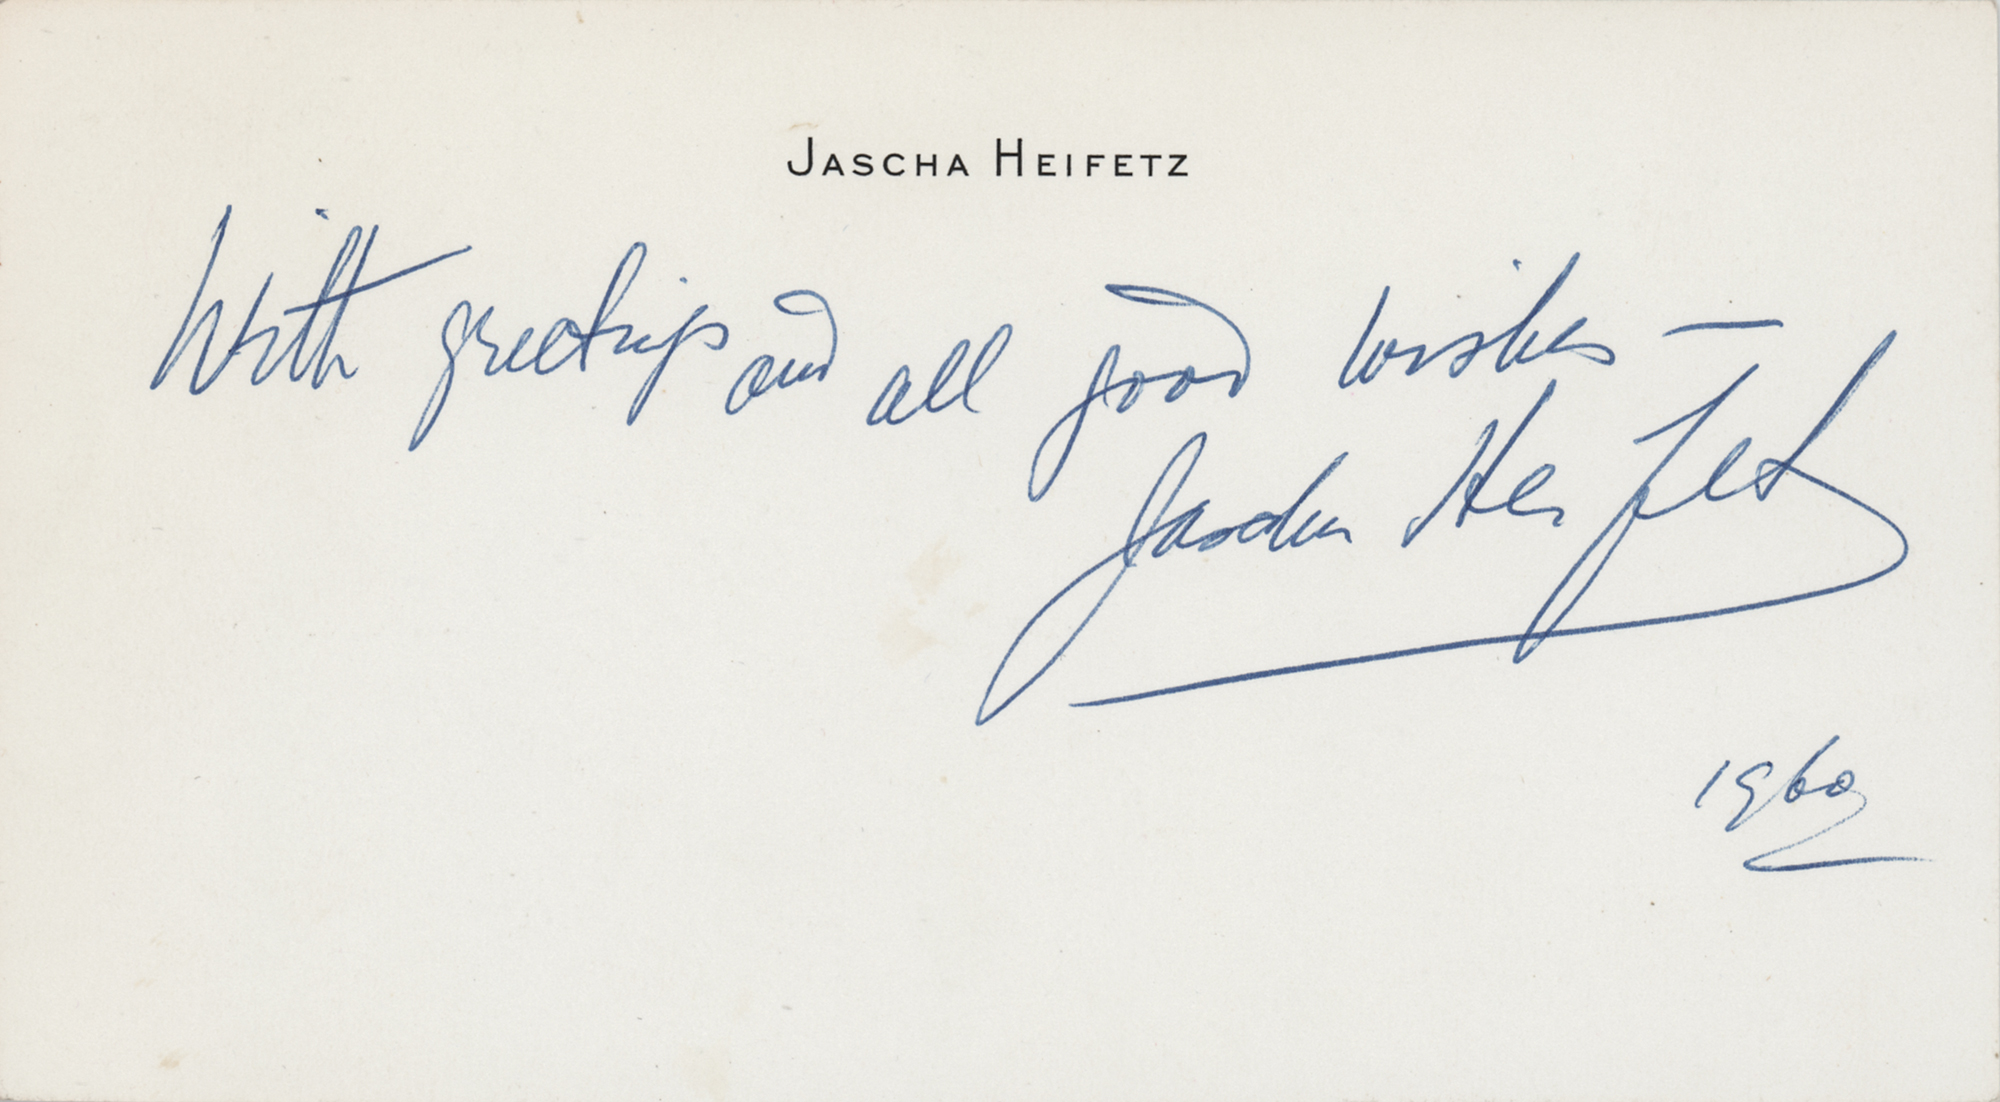 JASCHA HEIFETZ
With greetings and all good wishes —
Jascha Heifetz
1960